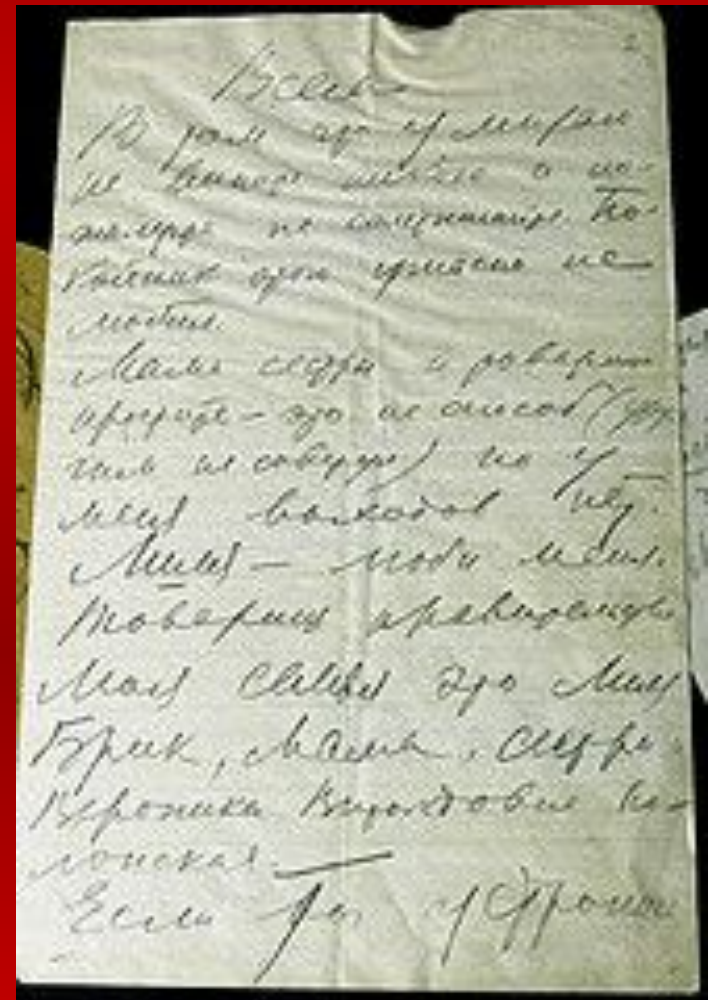 Всем
В том что умираю
не вините никого и по-
жалуйста не сплетничайте. По-
койник этого ужасно не
любил.
Мама сестры и товарищи
простите – это не способ (дру
гим не советую) но у
меня выходов нет.
Лиля – люби меня.
Товарищ правительство
моя семья это Лиля
Брик, мама, сестры
Вероника Витольдовна По-
лонская. —
Если ты устроишь